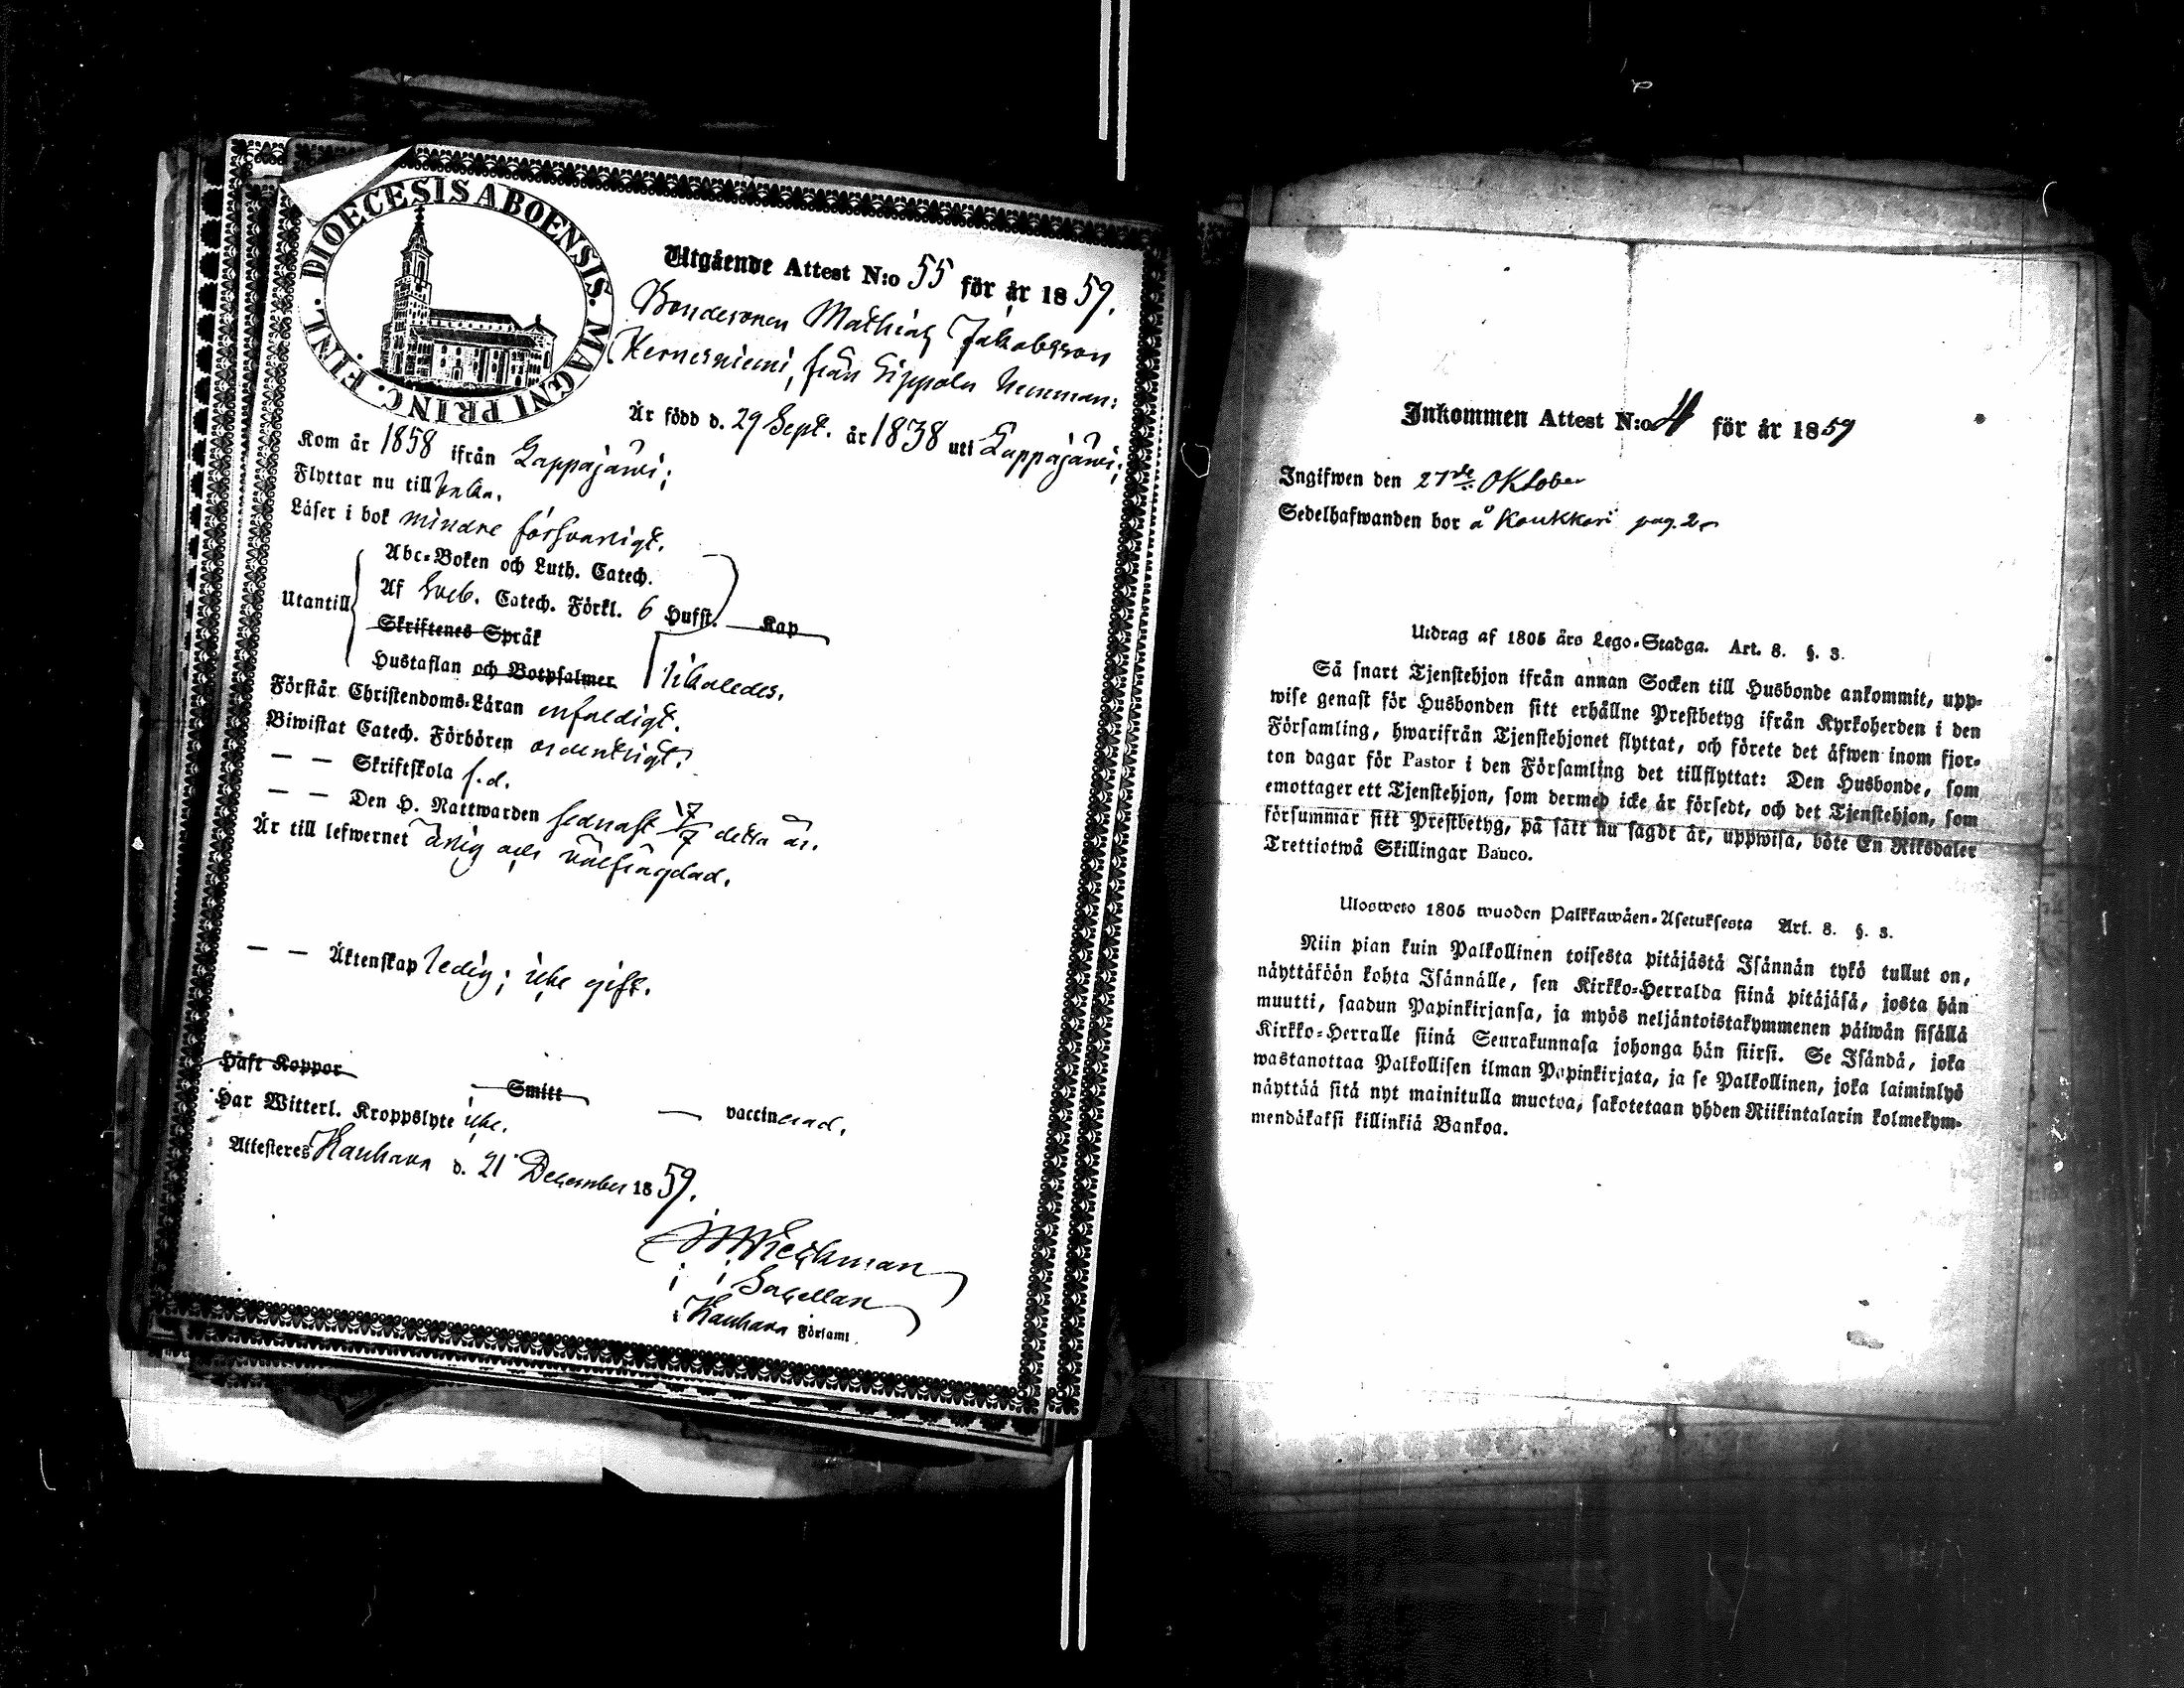 DIOECESIS ABOENSIS. MAGNI PRINC. FINL.
Utgående Attest N:o 55 för år 1859.
Bondesonen Mathias Jakobsson
Kernesniemi, från Lippola hemman:
Är född d. 29 Sept. år 1838 uti Lappajärvi;
Kom år 1858 ifrån Lappajärvi;
Flyttar nu till
Läser i bok mindre försvarligt.
Abc-Boken och Luth. Catech.
Utantill Af Sveb. Catech. Förkl. 6 Hufst. Kap
Skriftenes Språk
Hustaflan och Botpsalmer likaledes.
Förstår Christendoms-Läran enfaldigt.
Biwistat Catech. Förhören ordentligt.
— — Skriftskola s.d.
— — Den H. Nattwarden sednast 17/7 detta år.
Är till lefwernet ärlig och välfrägdad.
— — Äktenskap ledig; icke gift.
Haft Koppor Smitt — vaccinerad.
Har Witterl. Kroppslyte icke.
Attesteres Kauhava d. 21 December 1859.
Capellan
i Kauhava Församl.
Inkommen Attest N:o 4 för år 1859
Ingifwen den 27de Oktober
Sedelhafwanden bor å Koukkari pag. 2
Utdrag af 1805 års Lego-Stadga. Art. 8. §. 3.
Så snart Tjenstehjon ifrån annan Socken till Husbonde ankommit, upp-
wise genast för Husbonden sitt erhållne Prestbetyg ifrån Kyrkoherden i den
Församling, hwarifrån Tjenstehjonet flyttat, och förete det äfwen inom fjor-
ton dagar för Pastor i den Församling det tillflyttat: Den Husbonde, som
emottager ett Tjenstehjon, som dermed icke är försedt, och det Tjenstehjon, som
försummar sitt Prestbetyg, på sätt nu sagdt är, uppwisa, böte En Riksdaler
Trettiotwå Skillingar Banco.
Ulosweto 1805 wuoden Palkkawäen-Asetuksesta Art. 8. §. 3.
Niin pian kuin Palkollinen toisesta pitäjästä Isännän tykö tullut on,
näyttäköön kohta Isännälle, sen Kirkko-Herralda siinä pitäjäsä, josta hän
muutti, saadun Papinkirjansa, ja myös neljäntoistakymmenen päiwän sisällä
Kirkko-Herralle siinä Seurakunnasa johonga hän siirsi. Se Isändä, joka
wastanottaa Palkollisen ilman Papinkirjata, ja se Palkollinen, joka laiminlyö
näyttää sitä nyt mainitulla muotoa, sakotetaan yhden Riikintalarin kolmekym-
mendäkaksi killinkiä Bankoa.